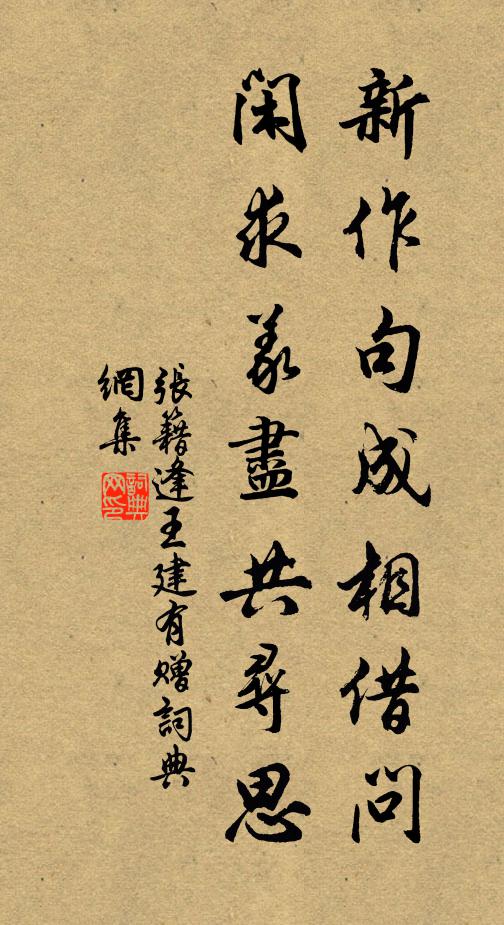 新作句成相借問
閑求義盡共尋思
張籍逢王建有贈詞典
網集
詞典
网印